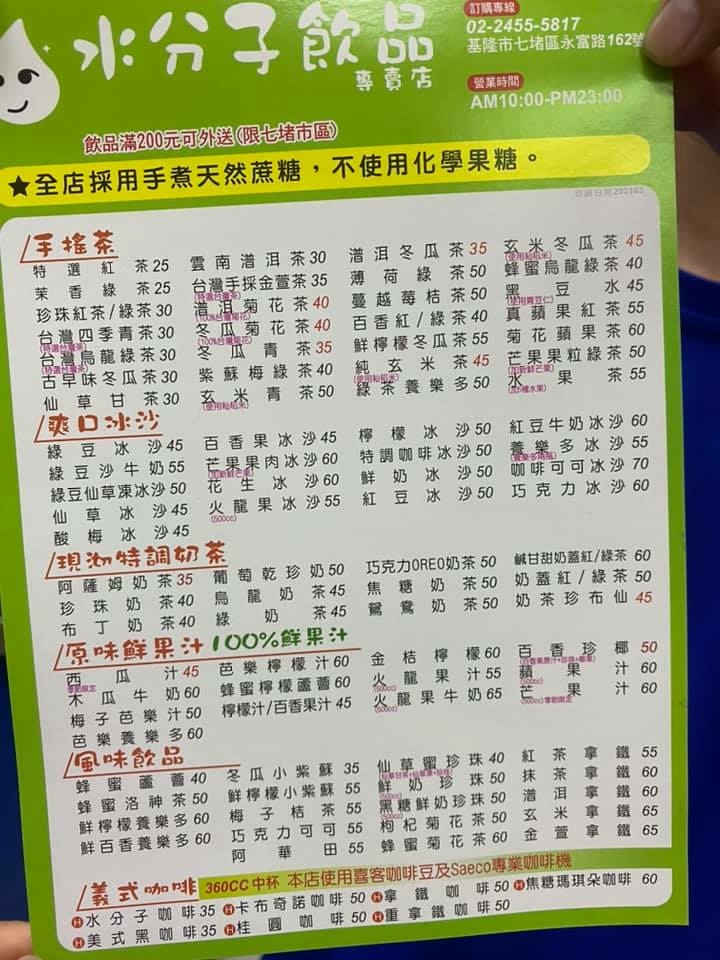 水分子飲品
專賣店
訂購專線
02-2455-5817
基隆市七堵區永富路162號
營業時間
AM10:00-PM23:00
飲品滿200元可外送(限七堵市區)
★全店採用手煮天然蔗糖，不使用化學果糖。
手搖茶
特選紅茶25 雲南普洱茶30 普洱冬瓜茶35 玄米冬瓜茶45
(使用秈稻米)
茉香綠茶25 台灣手採金萱茶35 薄荷綠茶50 蜂蜜烏龍綠茶40
(特選台灣茶)
珍珠紅茶/綠茶30 普洱菊花茶40 蔓越莓桔茶50 黑豆水45
(100%台灣菊花) (使用青豆仁)
台灣四季青茶30 冬瓜菊花茶40 百香紅/綠茶40 真蘋果紅茶55
(特選台灣茶) (100%台灣菊花)
台灣烏龍綠茶30 冬瓜青茶35 鮮檸檬冬瓜茶55 菊花蘋果茶60
(特選台灣茶)
古早味冬瓜茶30 紫蘇梅綠茶40 純玄米茶45 芒果果粒綠茶50
(使用秈稻米) (加新鮮芒果)
仙草甘茶30 玄米青茶50 綠茶養樂多50 水果茶55
(使用秈稻米) (加5種水果)
爽口冰沙
綠豆冰沙45 百香果冰沙45 檸檬冰沙50 紅豆牛奶冰沙60
綠豆沙牛奶55 芒果果肉冰沙60 特調咖啡冰沙50 養樂多冰沙55
(加新鮮芒果) (養樂多兩瓶)
綠豆仙草凍冰沙50 花生冰沙60 鮮奶冰沙50 咖啡可可冰沙70
仙草冰沙45 火龍果冰沙55 紅豆冰沙50 巧克力冰沙60
(500cc)
酸梅冰沙45
現沏特調奶茶
阿薩姆奶茶35 葡萄乾珍奶50 巧克力OREO奶茶50 鹹甘甜奶蓋紅/綠茶60
珍珠奶茶40 烏龍奶茶45 焦糖奶茶50 奶蓋紅/綠茶50
布丁奶茶40 綠奶茶45 鴛鴦奶茶50 奶茶珍布仙45
原味鮮果汁100%鮮果汁
西瓜汁45 芭樂檸檬汁60 金桔檸檬60 百香珍椰50
季節限定 (百香果原汁+珍珠+椰果)
木瓜牛奶60 蜂蜜檸檬蘆薈60 火龍果汁55 蘋果汁60
(500cc) (500cc)
梅子芭樂汁50 檸檬汁/百香果汁45 火龍果牛奶65 芒果汁60
(500cc) (500cc)季節限定
芭樂養樂多60
風味飲品
蜂蜜蘆薈40 冬瓜小紫蘇35 仙草蜜珍珠40 紅茶拿鐵55
(仙草甘茶+仙草凍+珍珠)
蜂蜜洛神茶50 鮮檸檬小紫蘇55 鮮奶珍珠50 抹茶拿鐵60
(500cc)
鮮檸檬養樂多60 梅子桔茶55 黑糖鮮奶珍珠50 普洱拿鐵60
(500cc)
鮮百香養樂多60 巧克力可可55 枸杞菊花茶50 玄米拿鐵65
阿華田55 蜂蜜菊花茶60 金萱拿鐵65
義式咖啡 360CC中杯 本店使用喜客咖啡豆及Saeco專業咖啡機
H水分子咖啡35 H卡布奇諾咖啡50 H拿鐵咖啡50 H焦糖瑪琪朵咖啡60
H美式黑咖啡35 H桂圓咖啡50 H重拿鐵咖啡50